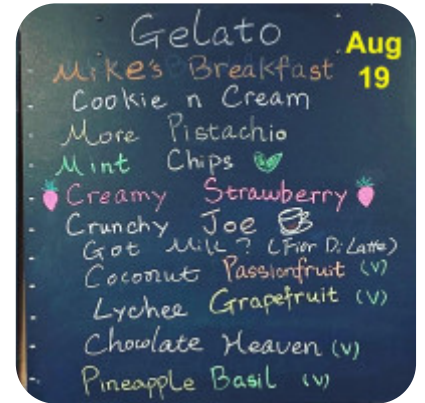 Gelato
Aug
19
- Mike's Breakfast
- Cookie n Cream
- More Pistachio
- Mint Chips
- Creamy Strawberry
- Crunchy Joe
- Got Milk? (Fior Di Latte)
- Coconut Passionfruit (V)
- Lychee Grapefruit (V)
- Chocolate Heaven (V)
- Pineapple Basil (V)